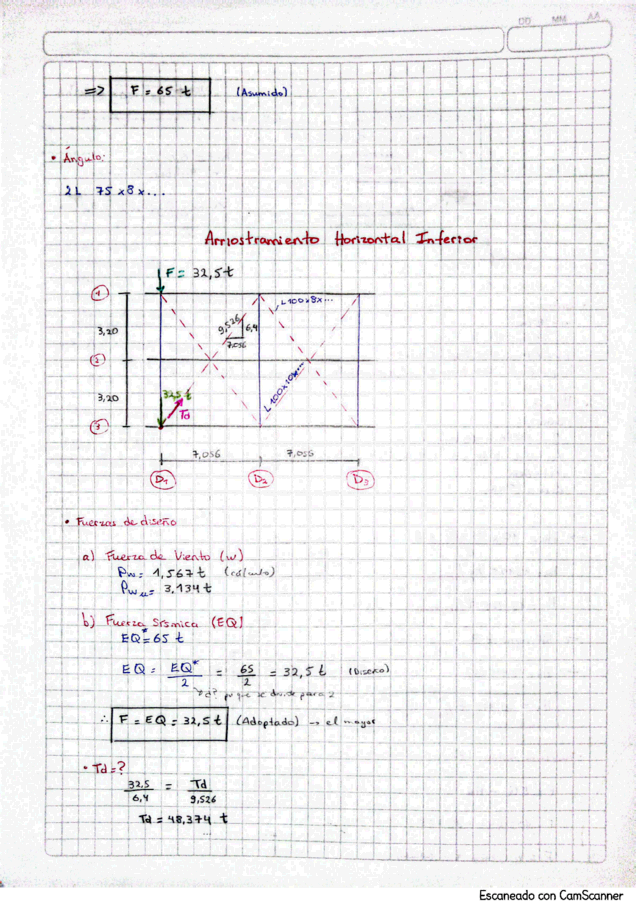 DD MM AA
=> F = 65 t (Asumido)
• Ángulo:
2L 75 x 8 x ...
Arriostramiento Horizontal Inferior
F = 32,5 t
1
L 100 x 8 x ...
9,526
6,4
7,056
3,20
2
3,20
32,5 t
Td
L 100 x 10 x ...
3
7,056 7,056
D1 D2 D3
• Fuerzas de diseño
a) Fuerza de Viento (w)
Pw = 1,567 t (cálculo)
Pwu = 3,134 t
b) Fuerza Sísmica (EQ)
EQ* = 65 t
EQ = EQ*/2 = 65/2 = 32,5 t (Diseño)
por que se divide para 2
∴ F = EQ = 32,5 t (Adoptado) → el mayor
• Td = ?
32,5/6,4 = Td/9,526
Td = 48,374 t
Escaneado con CamScanner